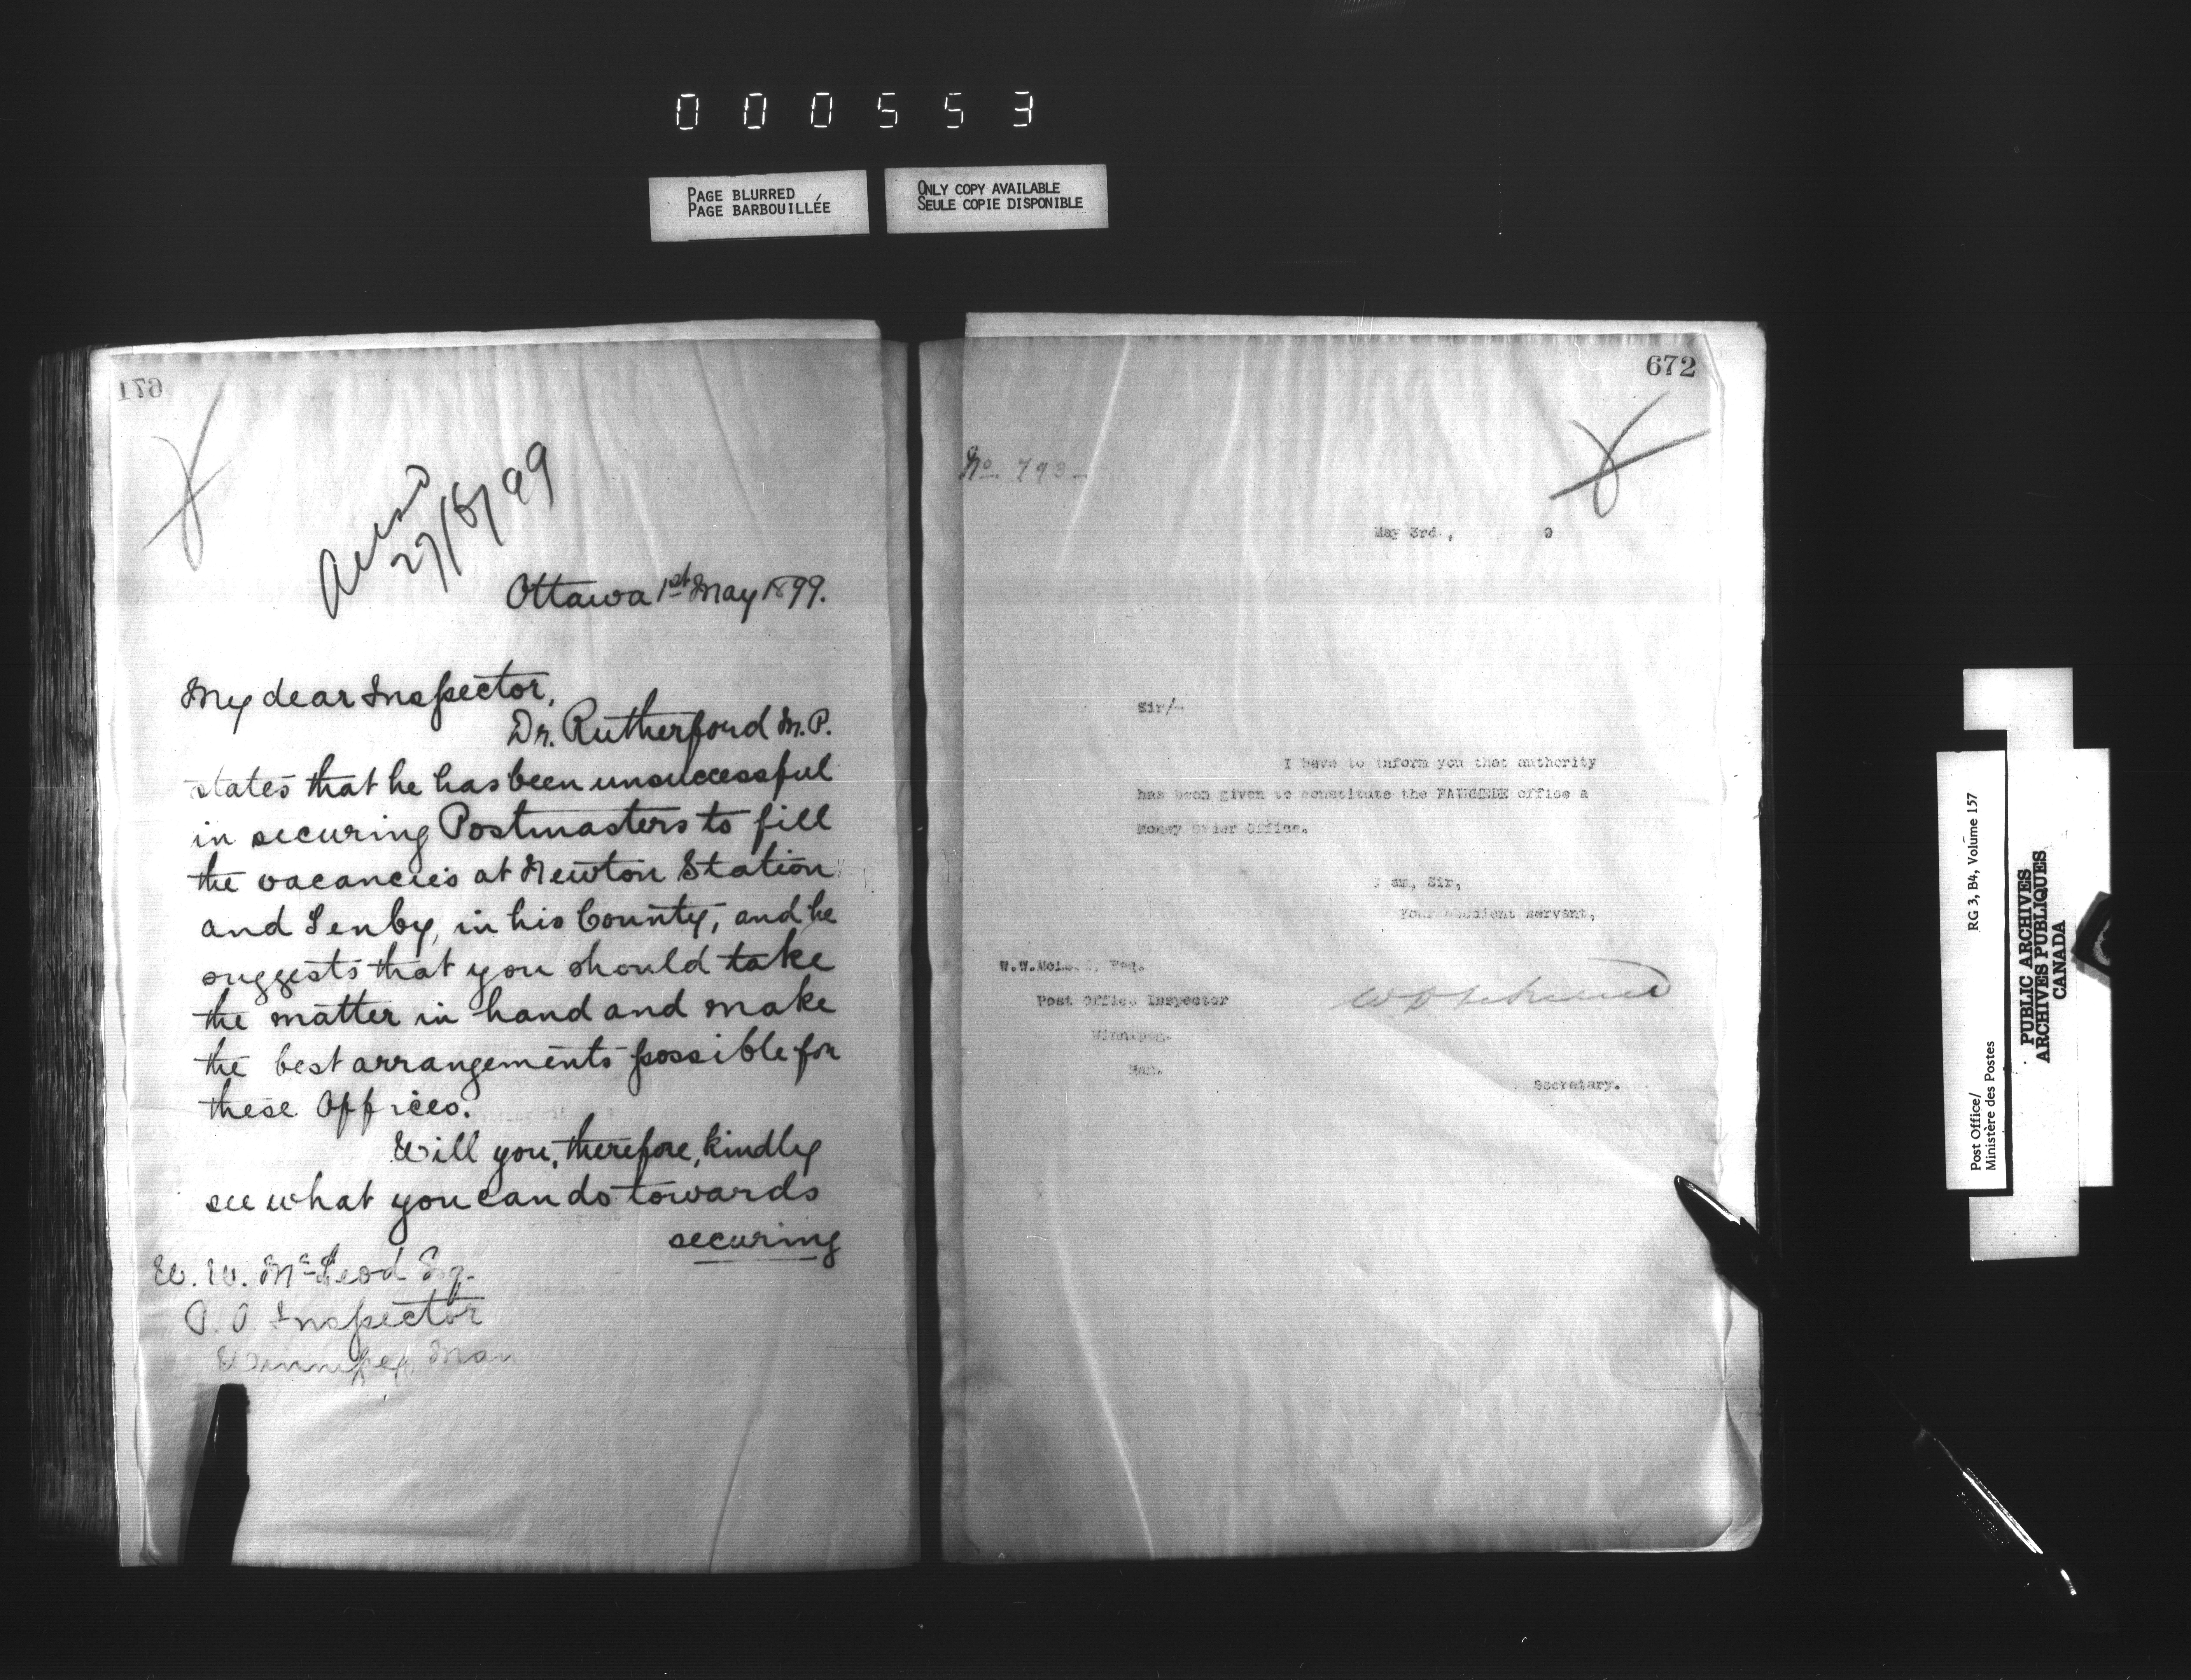 000553
PAGE BLURRED
PAGE BARBOUILLÉE
ONLY COPY AVAILABLE
SEULE COPIE DISPONIBLE
671
27/5/99
Ottawa 1st May 1899.
My dear Inspector,
Dr. Rutherford M.P.
states that he has been unsuccessful
in securing Postmasters to fill
the vacancies at Newton Station
and Tenby, in his County, and he
suggests that you should take
the matter in hand and make
the best arrangements possible for
these Offices.
Will you, therefore, kindly
see what you can do towards
securing
W. W. McLeod Esq.
P. O. Inspector
Winnipeg, Man
672
No. 793-
May 3rd., 9
Sir/-
I have to inform you that authority
has been given to constitute the FAIRMEDE office a
Money Order Office.
I am, Sir,
Your obedient servant,
W.W.McLeod, Esq.
Post Office Inspector
Winnipeg.
Man.
Secretary.
Post Office/
Ministère des Postes
RG 3, B4, Volume 157
PUBLIC ARCHIVES
ARCHIVES PUBLIQUES
CANADA